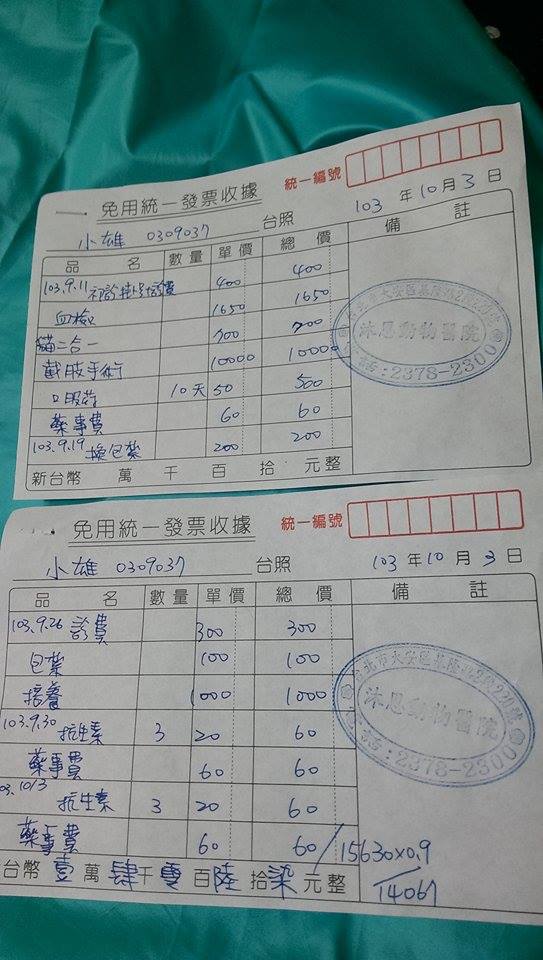 免用統一發票收據 統一編號
小雄 0309037 台照 103 年 10 月 3 日
品 名 數量 單價 總 價 備 註
103.9.11 初診掛號診費 400 400
血檢 1650 1650
貓二合一 700 700
截肢手術 10000 10000
口服药 10天 50 500
藥事費 60 60
103.9.19 換包紮 200 200
新台幣 萬 千 百 拾 元整
沐恩動物醫院
電話:2378-2300
免用統一發票收據 統一編號
小雄 0309037 台照 103 年 10 月 3 日
品 名 數量 單價 總 價 備 註
103.9.26 診費 300 300
包紮 100 100
培養 1000 1000
103.9.30 抗生素 3 20 60
藥事費 60 60
03.10/3 抗生素 3 20 60
藥事費 60 60
15630×0.9
14067
台幣 壹 萬 肆 千 零 百 陸 拾 柒 元整
台北市大安區基隆路2段
沐恩動物醫院
電話:2378-2300